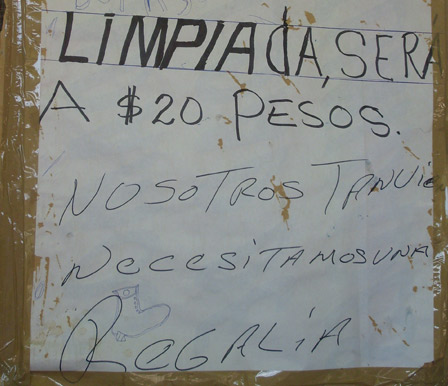 LIMPIADA, SERA
A $20 PESOS.
NOSOTROS TANVIE
NecesiTAMOS UNA
ReGALIA